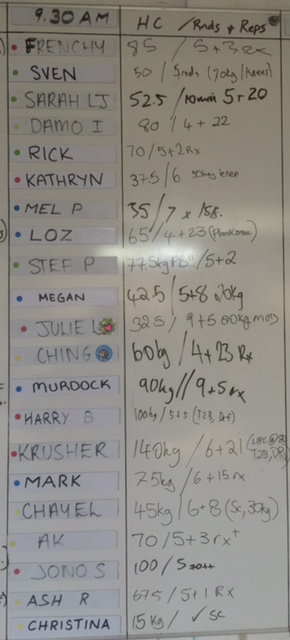 9.30 AM HC / Rnds + Reps
FRENCHY 85 / 5+3 Rx
SVEN 50 / 5rnds
SARAH LJ 52.5 / 5+20
DAMO I 80 / 4+22
RICK 70/5+2Rx
KATHRYN 37.5/6
MEL P 35/7
LOZ 65/4+23
STEF P 77.5kg PB!!/5+2
MEGAN 42.5 / 5+8 20kg
JULIE L 32.5 / 9+5
CHING 60kg / 4+23 Rx
MURDOCK 90kg // 9+5 rx
HARRY B 100kg
KRUSHER 140kg / 6+21
MARK 75kg / 6+15 rx
CHAYEL 45kg / 6+8 (Sc, 30kg)
AK 70/5+3rx+
JONO S 100/5
ASH R 67.5 / 5+1 RX
CHRISTINA 15kg / ✓ SC